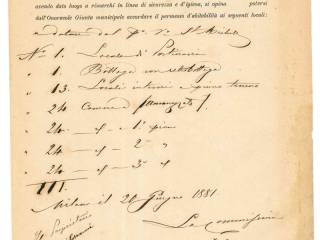 avendo dato luogo a rimarchi in linea di sicurezza e d'igiene, si opina potersi
dall'Onorevole Giunta municipale accordare il permesso d'abitabilità ai seguenti locali:
a datare dal
N° 1. Locale di Portineria
" 1. Bottega con retrobottega
" 13. Locali interni a piano terreno
" 24 Camere
" 24 — id — 1° piano
" 24 — id — 2° "
" 24 — id — 3° "
111.
Milano il 20 Giugno 1881
La Commissione
Proprietario